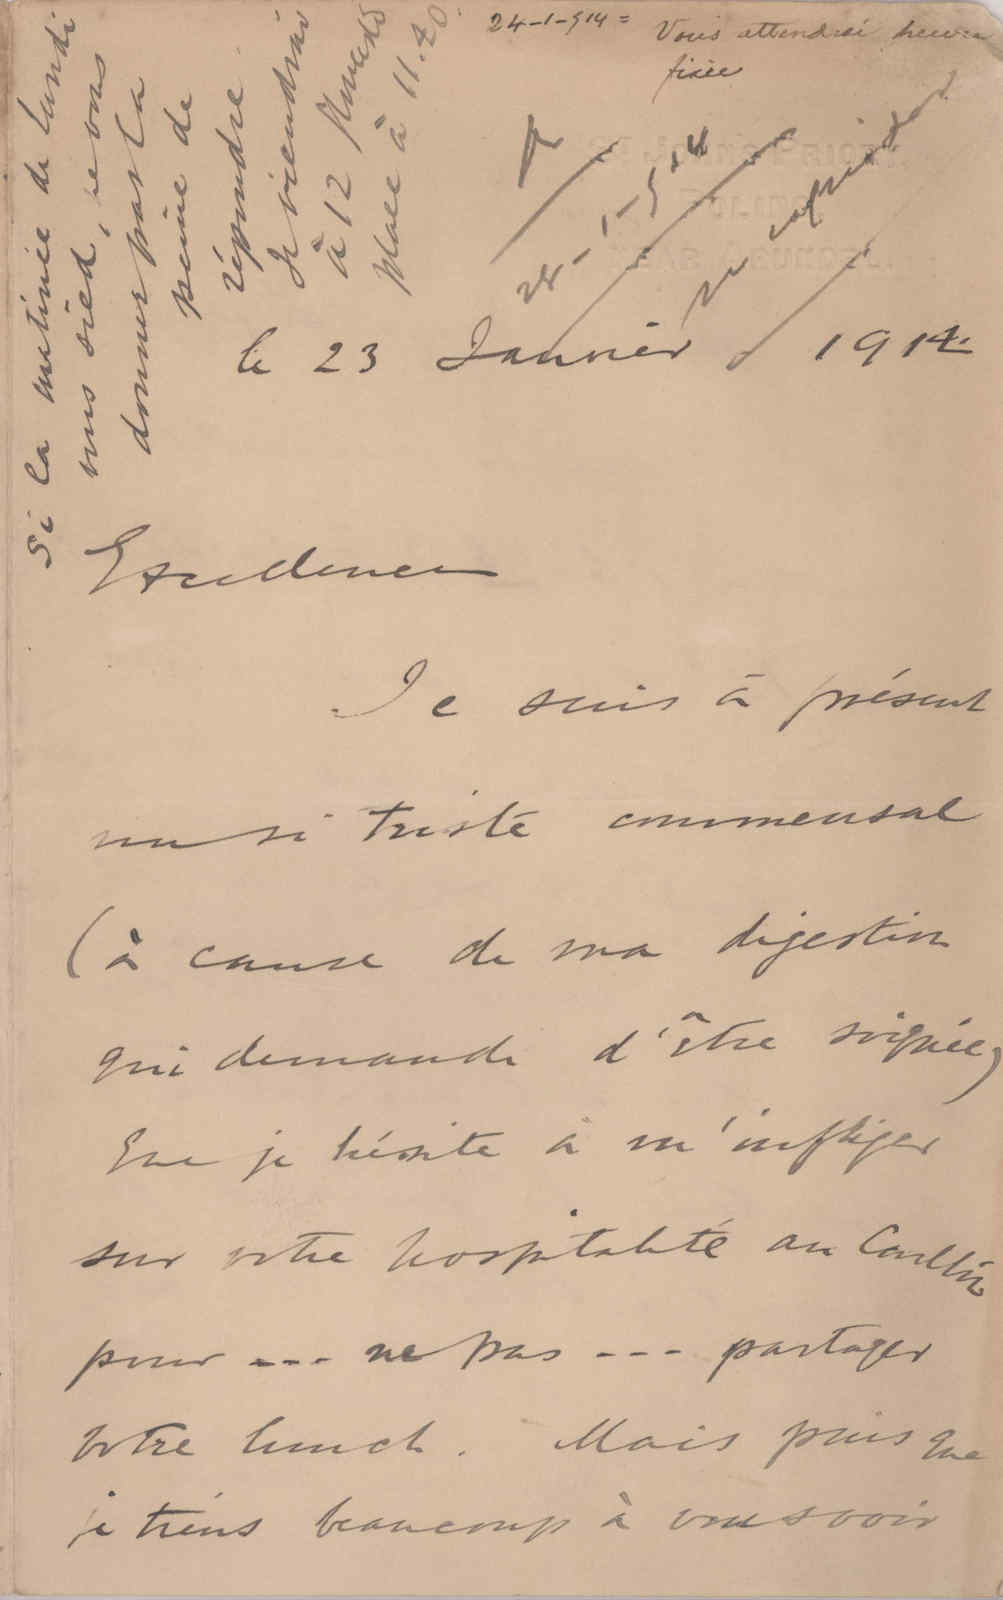 24-1-914 = Vous attendrai heure
fixée
R
24-1-914
Si la matinée de lundi
vous sied, ne vous
donnez pas la
peine de
répondre.
Je viendrai
à 12
place à 11.40.
le 23 Janvier 1914
Excellence
Je suis à présent
un si triste commensal
(à cause de ma digestion
qui demande d'être soignée)
que je hésite à m'infliger
sur votre hospitalité au Carlton
pour --- ne pas --- partager
votre lunch. Mais puisque
je tiens beaucoup à vous voir